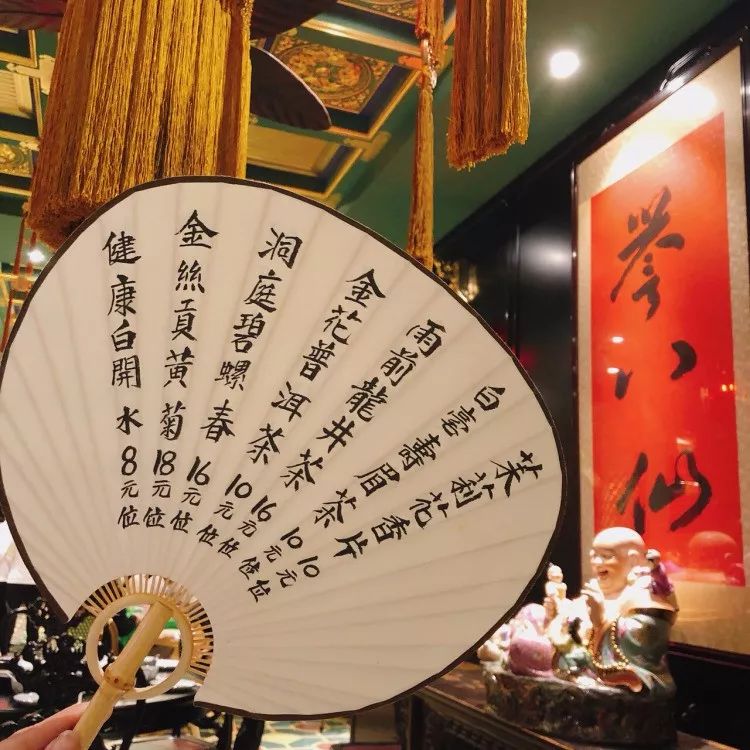 茉莉花香片10元位
白毫壽眉茶10元位
雨前龍井茶16元位
金花普洱茶10元位
洞庭碧螺春16元位
金絲貢黃菊18元位
健康白開水8元位
八仙